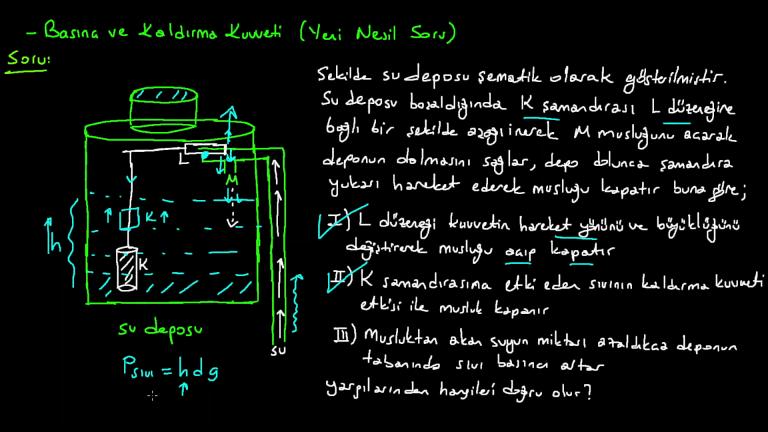 - Basınç ve Kaldırma Kuvveti (Yeni Nesil Soru)
Soru:
Şekilde su deposu şematik olarak gösterilmiştir.
Su deposu boşaldığında K şamandırası L düzeneğine
bağlı bir şekilde aşağı inerek M musluğunu açarak
deponun dolmasını sağlar, depo dolunca şamandıra
yukarı hareket ederek musluğu kapatır buna göre;
I) L düzeneği kuvvetin hareket yönünü ve büyüklüğünü
değiştirerek musluğu açıp kapatır
II) K şamandırasına etki eden sıvının kaldırma kuvveti
etkisi ile musluk kapanır
III) Musluktan akan suyun miktarı azaldıkça deponun
tabanında sıvı basıncı artar
yargılarından hangileri doğru olur?
L
M
K
h
K
su deposu
su
Psıvı = h d g